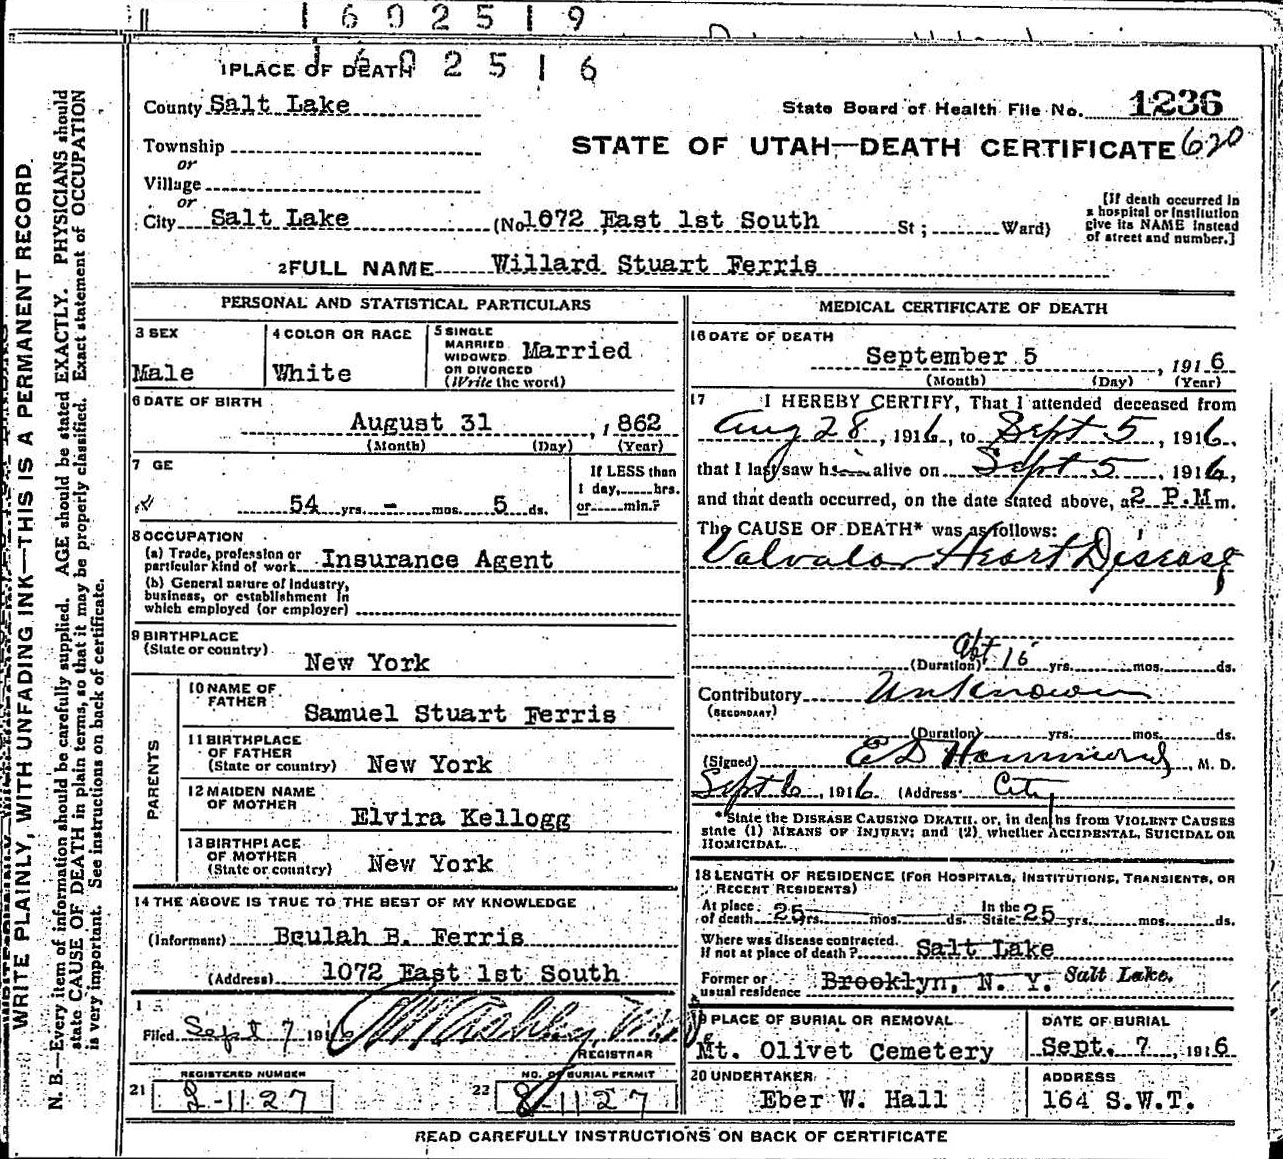 1602519
1602516
1 PLACE OF DEATH
County Salt Lake
State Board of Health File No. 1236
Township
or
STATE OF UTAH—DEATH CERTIFICATE 620
Village
or
City Salt Lake (No 1072 East 1st South St; Ward)
[If death occurred in
a hospital or institution
give its NAME instead
of street and number.]
2 FULL NAME Willard Stuart Ferris
PERSONAL AND STATISTICAL PARTICULARS
3 SEX
Male
4 COLOR OR RACE
White
5 SINGLE
MARRIED
WIDOWED
OR DIVORCED
(Write the word)
Married
6 DATE OF BIRTH
August 31, 1862
(Month) (Day) (Year)
7 GE
54 yrs. - mos. 5 ds.
If LESS than
1 day, hrs.
or min.?
8 OCCUPATION
(a) Trade, profession or
particular kind of work Insurance Agent
(b) General nature of Industry,
business, or establishment in
which employed (or employer)
9 BIRTHPLACE
(State or country)
New York
PARENTS
10 NAME OF
FATHER
Samuel Stuart Ferris
11 BIRTHPLACE
OF FATHER
(State or country) New York
12 MAIDEN NAME
OF MOTHER
Elvira Kellogg
13 BIRTHPLACE
OF MOTHER
(State or country) New York
14 THE ABOVE IS TRUE TO THE BEST OF MY KNOWLEDGE
(Informant) Beulah B. Ferris
(Address) 1072 East 1st South
15
Filed Sept 7 1916
REGISTRAR
REGISTERED NUMBER
21 2-1127
NO. OF BURIAL PERMIT
22 2-1127
MEDICAL CERTIFICATE OF DEATH
16 DATE OF DEATH
September 5, 1916
(Month) (Day) (Year)
17 I HEREBY CERTIFY, That I attended deceased from
Aug 28, 1916, to Sept 5, 1916,
that I last saw h alive on Sept 5, 1916,
and that death occurred, on the date stated above, at 2 P.M m.
The CAUSE OF DEATH* was as follows:
Valvalar Heart Disease
Abt 15
(Duration) yrs. mos. ds.
Contributory Unknown
(SECONDARY)
(Duration) yrs. mos. ds.
(Signed) E D Hammond, M. D.
Sept 6, 1916 (Address City
*State the DISEASE CAUSING DEATH, or, in deaths from VIOLENT CAUSES
state (1) MEANS OF INJURY; and (2) whether ACCIDENTAL, SUICIDAL OR
HOMICIDAL.
18 LENGTH OF RESIDENCE (FOR HOSPITALS, INSTITUTIONS, TRANSIENTS, OR
RECENT RESIDENTS)
At place
of death 25 yrs. mos. ds. In the State 25 yrs. mos. ds.
Where was disease contracted
if not at place of death? Salt Lake
Former or
usual residence Brooklyn, N. Y. Salt Lake.
19 PLACE OF BURIAL OR REMOVAL
Mt. Olivet Cemetery
DATE OF BURIAL
Sept. 7, 1916
20 UNDERTAKER
Eber W. Hall
ADDRESS
164 S.W.T.
READ CAREFULLY INSTRUCTIONS ON BACK OF CERTIFICATE
WRITE PLAINLY, WITH UNFADING INK—THIS IS A PERMANENT RECORD.
N. B.—Every item of information should be carefully supplied. AGE should be stated EXACTLY. PHYSICIANS should
state CAUSE OF DEATH in plain terms, so that it may be properly classified. Exact statement of OCCUPATION
is very important. See instructions on back of certificate.